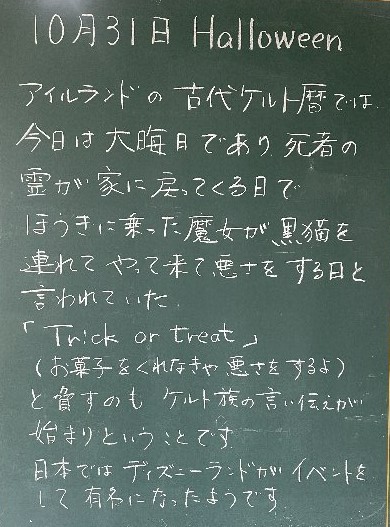 10月31日 Halloween
アイルランドの 古代ケルト暦では、
今日は大晦日であり、死者の
霊が家に戻ってくる日で
ほうきに乗った魔女が黒猫を
連れて やって来て悪さをする日と
言われていた。
「Trick or treat」
（お菓子をくれなきゃ悪さをするよ）
と脅すのも ケルト族の言い伝えが
始まりということです。
日本ではディズニーランドがイベントを
して 有名になったようです